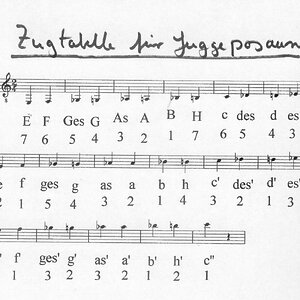 Zugtabelle für Guggeposaun
E F Ges G As A B H c des d es
7 6 5 4 3 2 1 7 6 5 4 3
e f ges g as a b h c' des' d' es'
2 1 5 4 3 2 1 4 3 2 1 3
' f' ges' g' as' a' b' h' c''
1 3 2 3 2 1 2 1